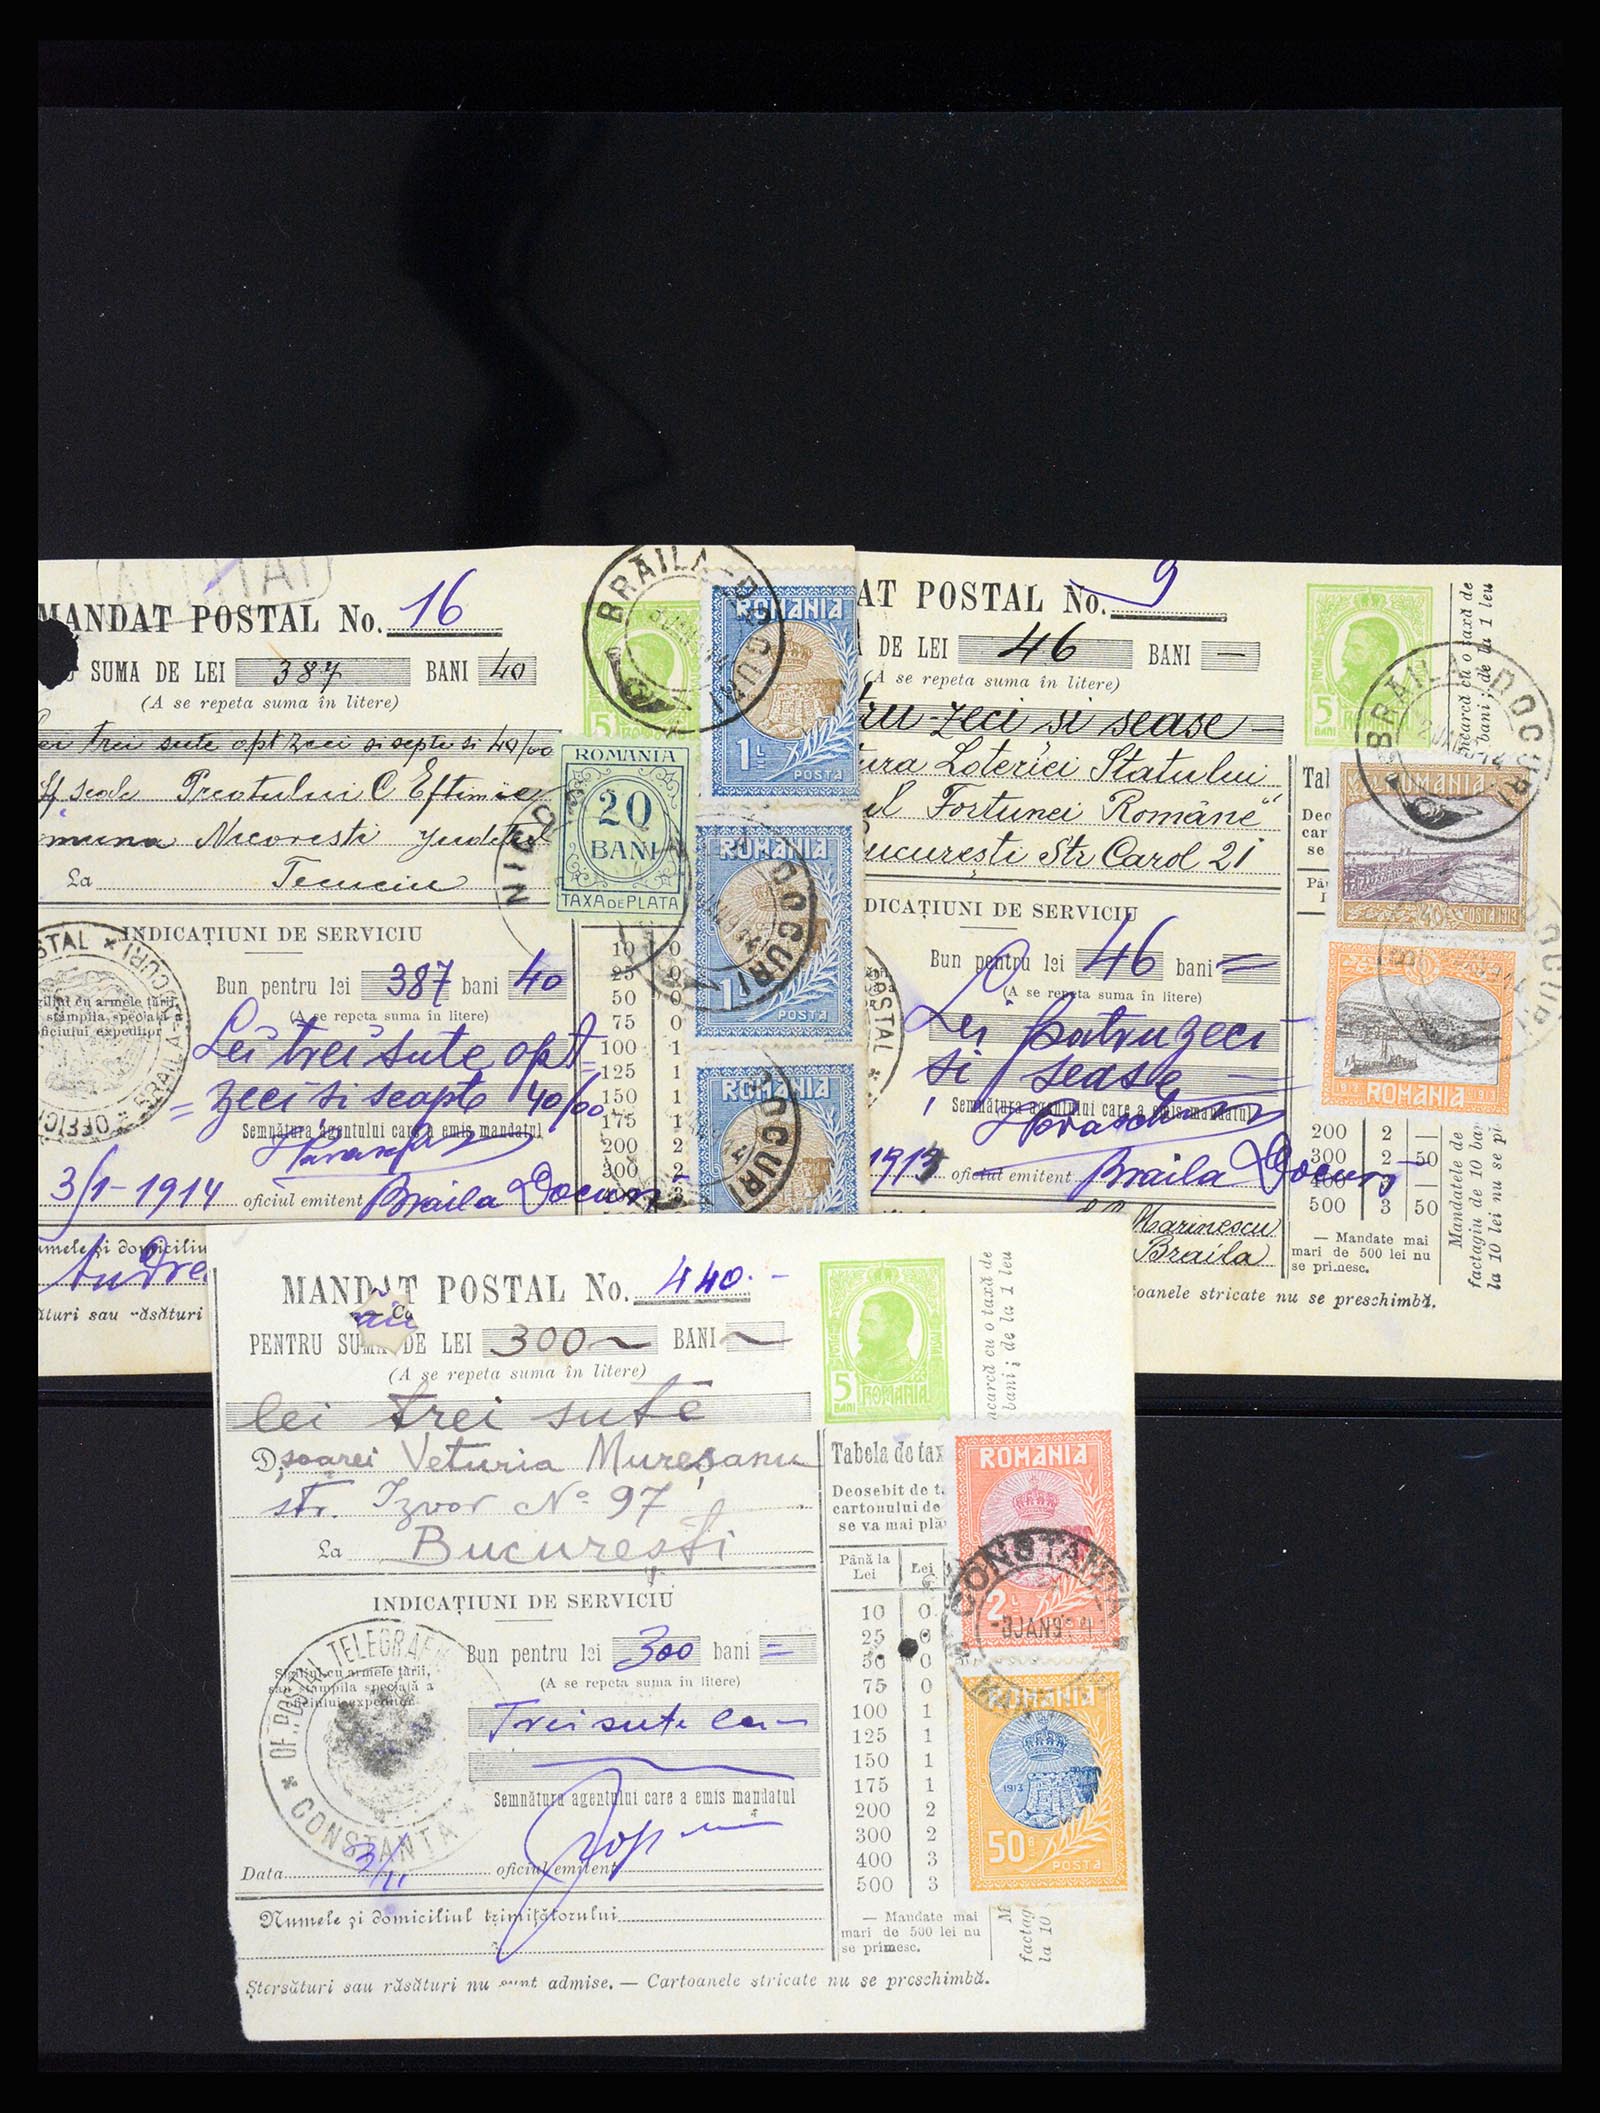 MANDAT POSTAL No. 16
SUMA DE LEI 387 BANI 40
(A se repeta suma în litere)
trei sute optzeci si septe si 40/00
Preotului C Eftimie
Nicoresti Judetul
La Tecuciu
INDICAȚIUNI DE SERVICIU
Bun pentru lei 387 bani 40
(A se repeta suma în litere)
Lei trei sute opt
zeci si seapte 40/00
Semnătura agentului care a emis mandatul
3/1-1914 oficiul emitent Braila Docuri
BRĂILA-DOCURI
ROMANIA
20
BANI
TAXA DE PLATA
ROMANIA
1L
POSTA
ROMANIA
1L
POSTA
ROMANIA
10 0
25 0
50 0
75 0
100 1
125 1
150 1
175 1
200 2
300 2
AT POSTAL No. 9
DE LEI 46 BANI —
(A se repeta suma în litere)
tru-zeci si sease
Loteriei Statului
Fortunei Române"
București Str Carol 21
DICAȚIUNI DE SERVICIU
Bun pentru lei 46 bani =
(A se repeta suma în litere)
Lei patruzeci
și sease
Semnătura agentului care a emis mandatul
oficiul emitent Braila Docuri
Marinescu
Braila
toanele stricate nu se preschimbă.
5 BANI ROMANIA
BRĂILA-DOCURI
ROMANIA
40 POSTA 1913
ROMANIA
200 2 —
300 2 50
400 3 —
500 3 50
— Mandate mai
mari de 500 lei nu
se primesc.
MANDAT POSTAL No. 440.-
PENTRU SUMA DE LEI 300 BANI
(A se repeta suma în litere)
lei trei sute
Dșoarei Veturia Mureșanu
str. Izvor No 97
La București
INDICAȚIUNI DE SERVICIU
Bun pentru lei 300 bani =
Sigiliul cu armele țării,
sau stampila specială a
oficiului expeditor
(A se repeta suma în litere)
Trei sute lei
Semnătura agentului care a emis mandatul
Data 3/11 oficiul emitent
Numele și domiciliul trimițătorului
Ștersături sau răsături nu sunt admise. — Cartoanele stricate nu se preschimbă.
CONSTANTA
5 BANI ROMANIA
Tabela de tax
Deosebit de t
cartonului de
se va mai plă
Până la Lei Lei
10 0
25 0
50 0
75 0
100 1
125 1
150 1
175 1
200 2
300 2
400 3
500 3
— Mandate mai
mari de 500 lei nu
se primesc.
ROMANIA
2L
CONSTANTA
ROMANIA
1913
50B
POSTA